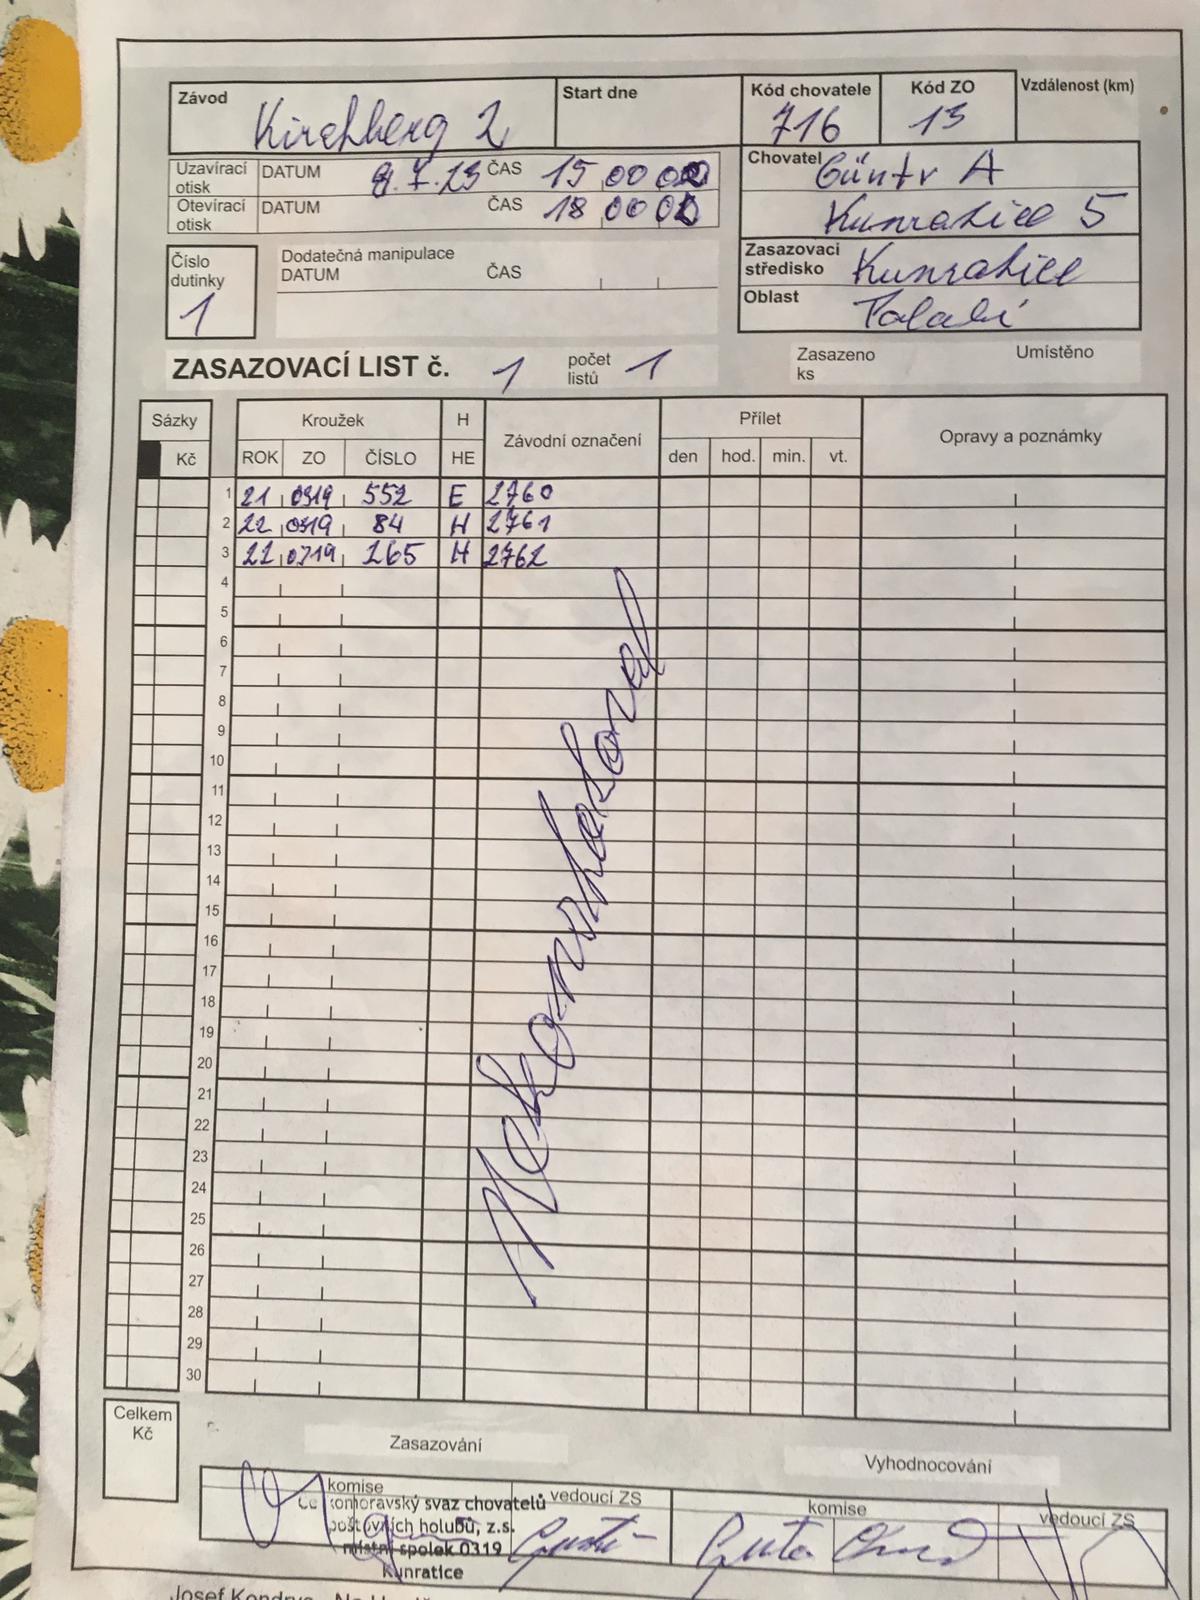 Závod Kirchberg 2 Start dne Kód chovatele 716 Kód ZO 13 Vzdálenost (km)
Uzavírací otisk DATUM 8.7.23 ČAS 15 00 00
Otevírací otisk DATUM ČAS 18 00 00
Chovatel Güntr A
Kunratice 5
Číslo dutinky 1
Dodatečná manipulace
DATUM ČAS
Zasazovací středisko Kunratice
Oblast Polabí
ZASAZOVACÍ LIST č. 1 počet listů 1 Zasazeno ks Umístěno
Sázky Kroužek H Závodní označení Přílet Opravy a poznámky
Kč ROK ZO ČÍSLO HE den hod. min. vt.
1 21 0319 552 E 2760
2 22 0319 84 H 2761
3 22 0719 265 H 2762
4
5
6
7
8
9
10
11
12
13
14
15
16
17
18
19
20
21
22
23
24
25
26
27
28
29
30
Nekonstatoval
Celkem Kč
Zasazování Vyhodnocování
komise vedoucí ZS komise vedoucí ZS
Českomoravský svaz chovatelů
poštovních holubů, z.s.
místní spolek 0319
Kunratice